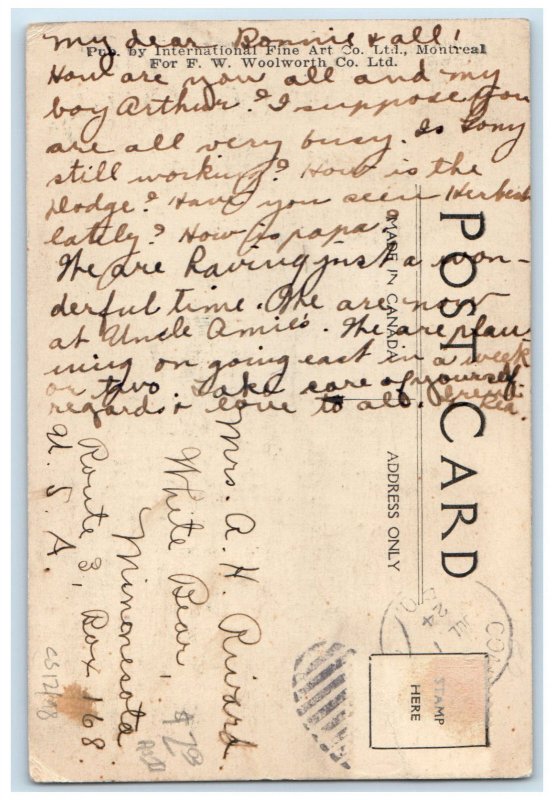 Pub. by International Fine Art Co. Ltd., Montreal
For F. W. Woolworth Co. Ltd.
My dear Bonnie & all!
How are now all and my
boy Arthur? I suppose you
are all very busy. Is Tony
still working? How is the
Dodge? Have you seen Herbert
lately? How is papa.
We are having just a won-
derful time. We are now
at Uncle Amie's. We are plan-
ning on going east in a week
or two. Take care of yourself.
regards & love to all.
Mrs. A. H. Rivard
White Bear,
Minnesota
Route 3, Box 168
U. S. A.
POST CARD
MADE IN CANADA
ADDRESS ONLY
STAMP
HERE